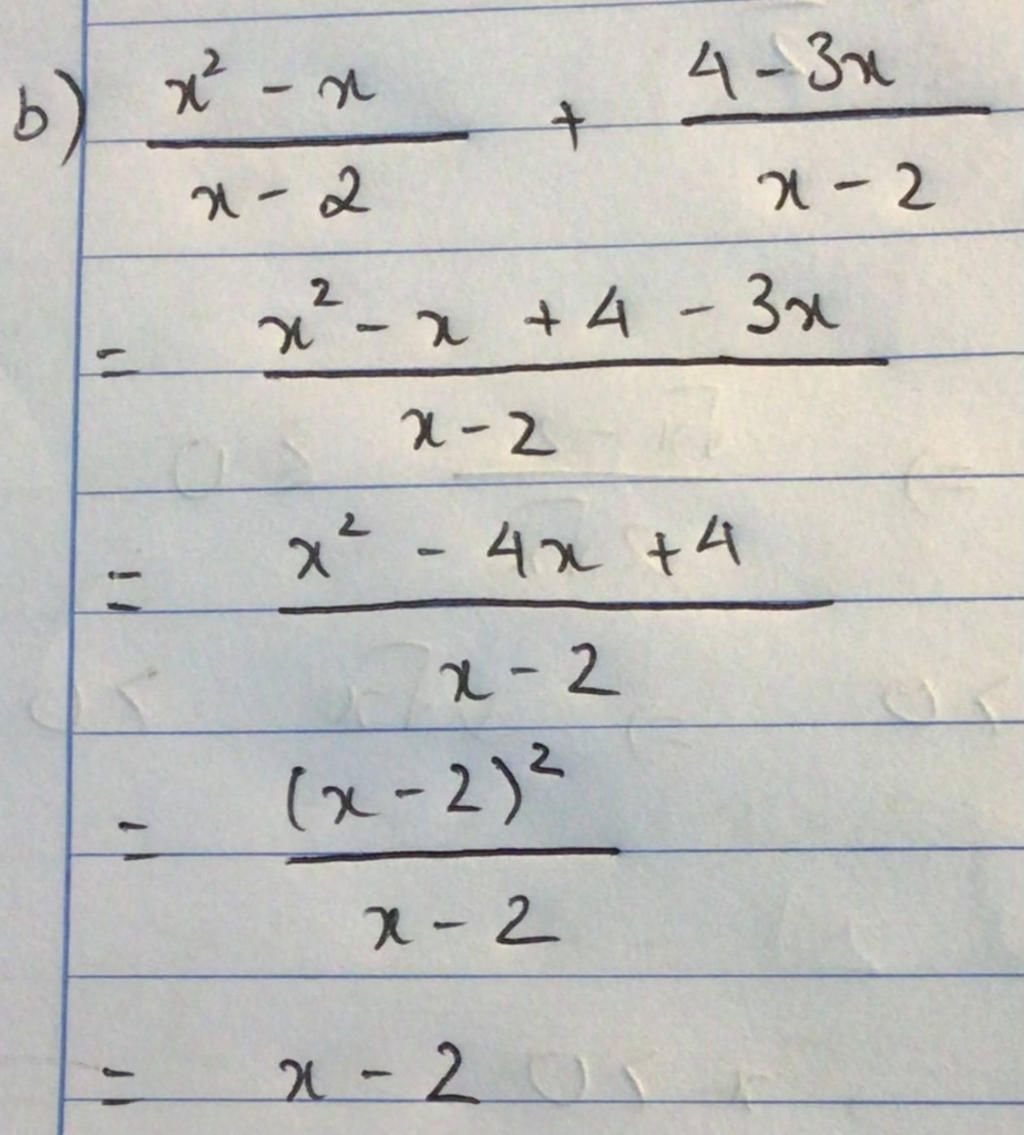 b) (x² - x)/(x - 2) + (4 - 3x)/(x - 2)
= (x² - x + 4 - 3x)/(x - 2)
= (x² - 4x + 4)/(x - 2)
= (x - 2)²/(x - 2)
= x - 2